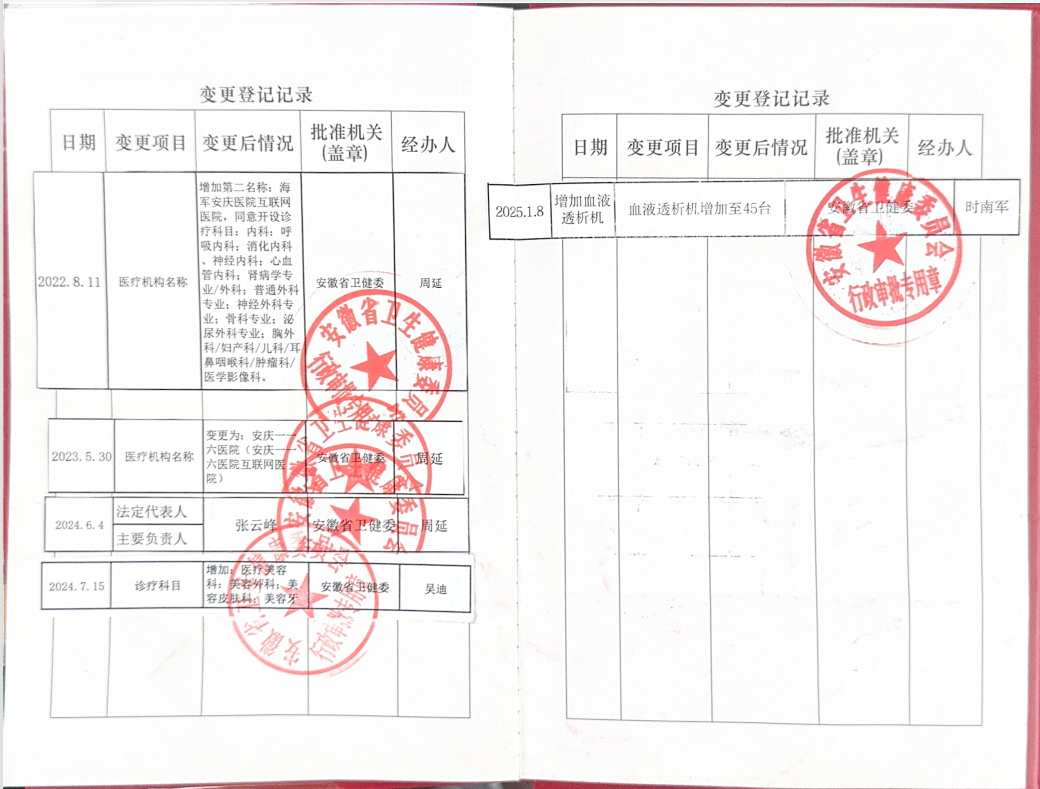 变更登记记录
日期 变更项目 变更后情况 批准机关(盖章) 经办人
2022.8.11 医疗机构名称
增加第二名称：海
军安庆医院互联网
医院，同意开设诊
疗科目：内科：呼
吸内科；消化内科
、神经内科；心血
管内科；肾病学专
业/外科；普通外科
专业；神经外科专
业；骨科专业；泌
尿外科专业；胸外
科/妇产科/儿科/耳
鼻咽喉科/肿瘤科/
医学影像科。
安徽省卫健委 周延
安徽省卫生健康委员
行政审批专用
2023.5.30 医疗机构名称
变更为：安庆一一
六医院（安庆一一
六医院互联网医
院）
安徽省卫健委 周延
省卫生健康委员会
2024.6.4
法定代表人
主要负责人
张云峰 安徽省卫健委 周延
省卫生健康委员会
2024.7.15 诊疗科目
增加：医疗美容
科：美容外科；美
容皮肤科；美容牙
安徽省卫健委 吴迪
变更登记记录
日期 变更项目 变更后情况 批准机关(盖章) 经办人
2025.1.8
增加血液
透析机
血液透析机增加至45台 安徽省卫健委 时南军
安徽省卫生健康委员会
行政审批专用章